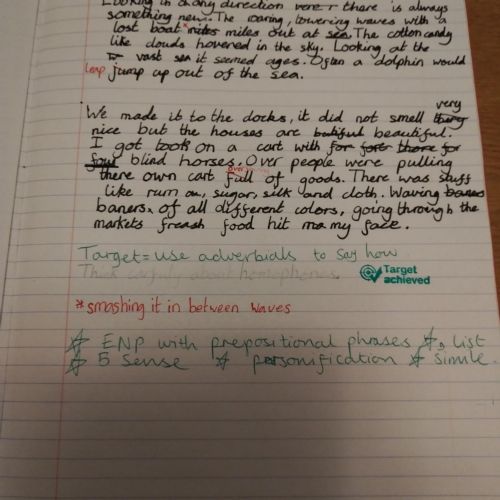 Looking in any direction there is always
something new. The roaring, towering waves with a
lost boat * miles out at sea. The cotton candy
like clouds hovered in the sky. Looking at the
vast sea it seemed ages. Often a dolphin would
leap jump up out of the sea.
We made it to the docks, it did not smell very
nice but the houses are beautiful.
I got took on a cart with
four blind horses. Over people were pulling
there own cart full of goods. There was stuff
like rum, sugar, silk and cloth. Waving
baners, of all different colors, going through the
markets freash food hit my face.
Target = use adverbials to say how
Think carfuly about homophones.
Target achieved
*smashing it in between waves
☆ ENP with prepositional phrases ☆ list
☆ 5 Sense ☆ personification ☆ simile.